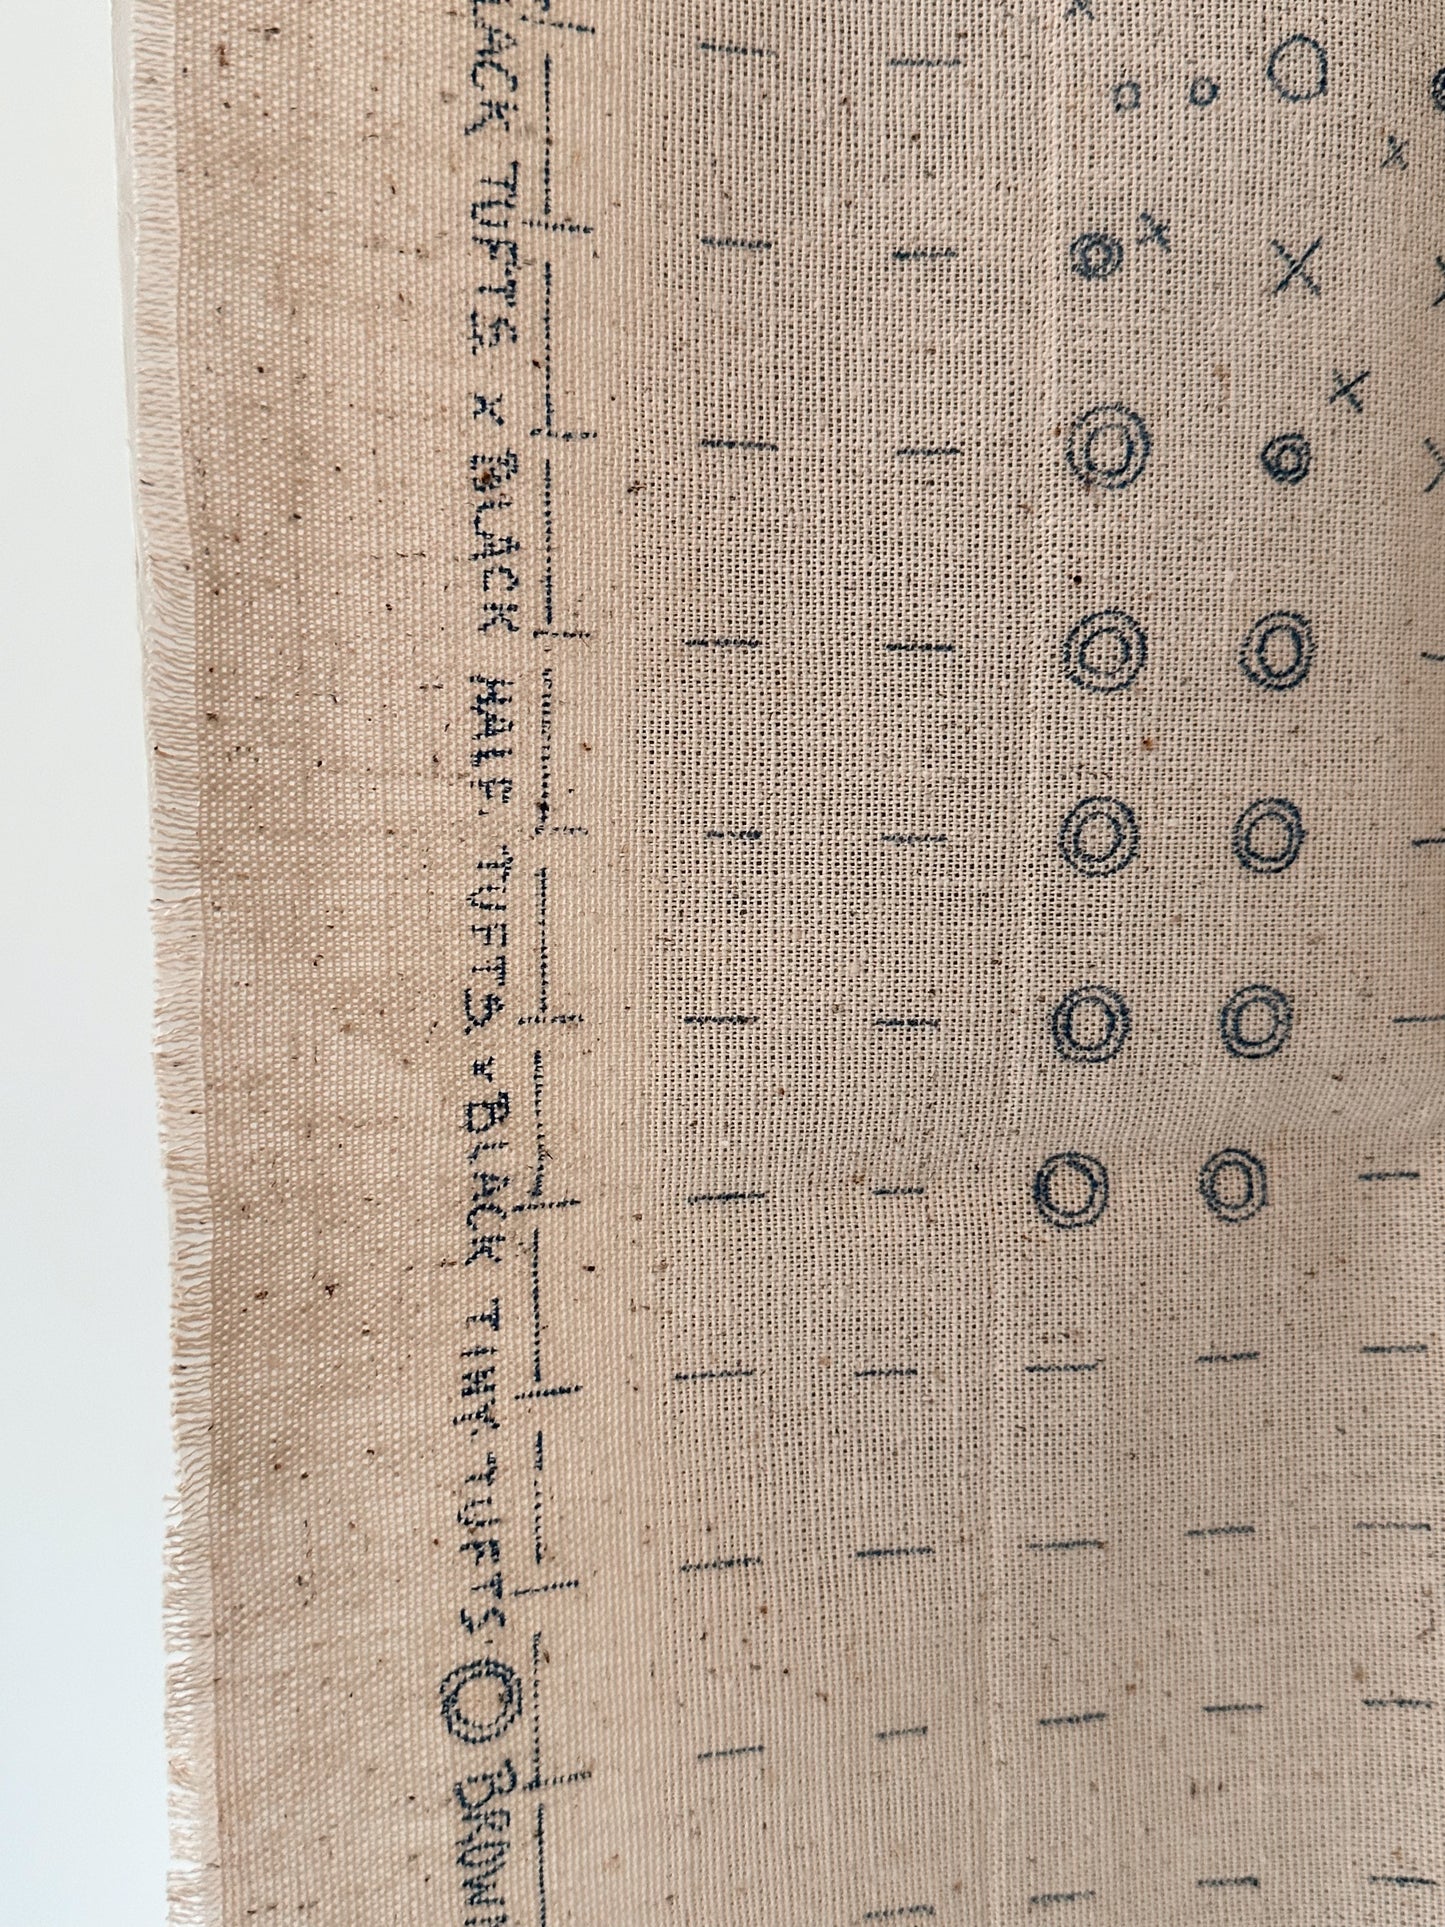 LACK TUFTS x BLACK HALF. TUFTS. x BLACK TINY. TUFTS. O BROWN